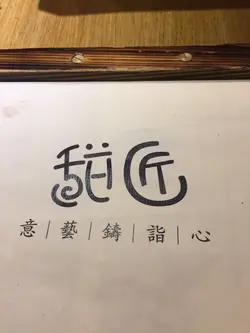 甜匠
意｜藝｜鑄｜詣｜心